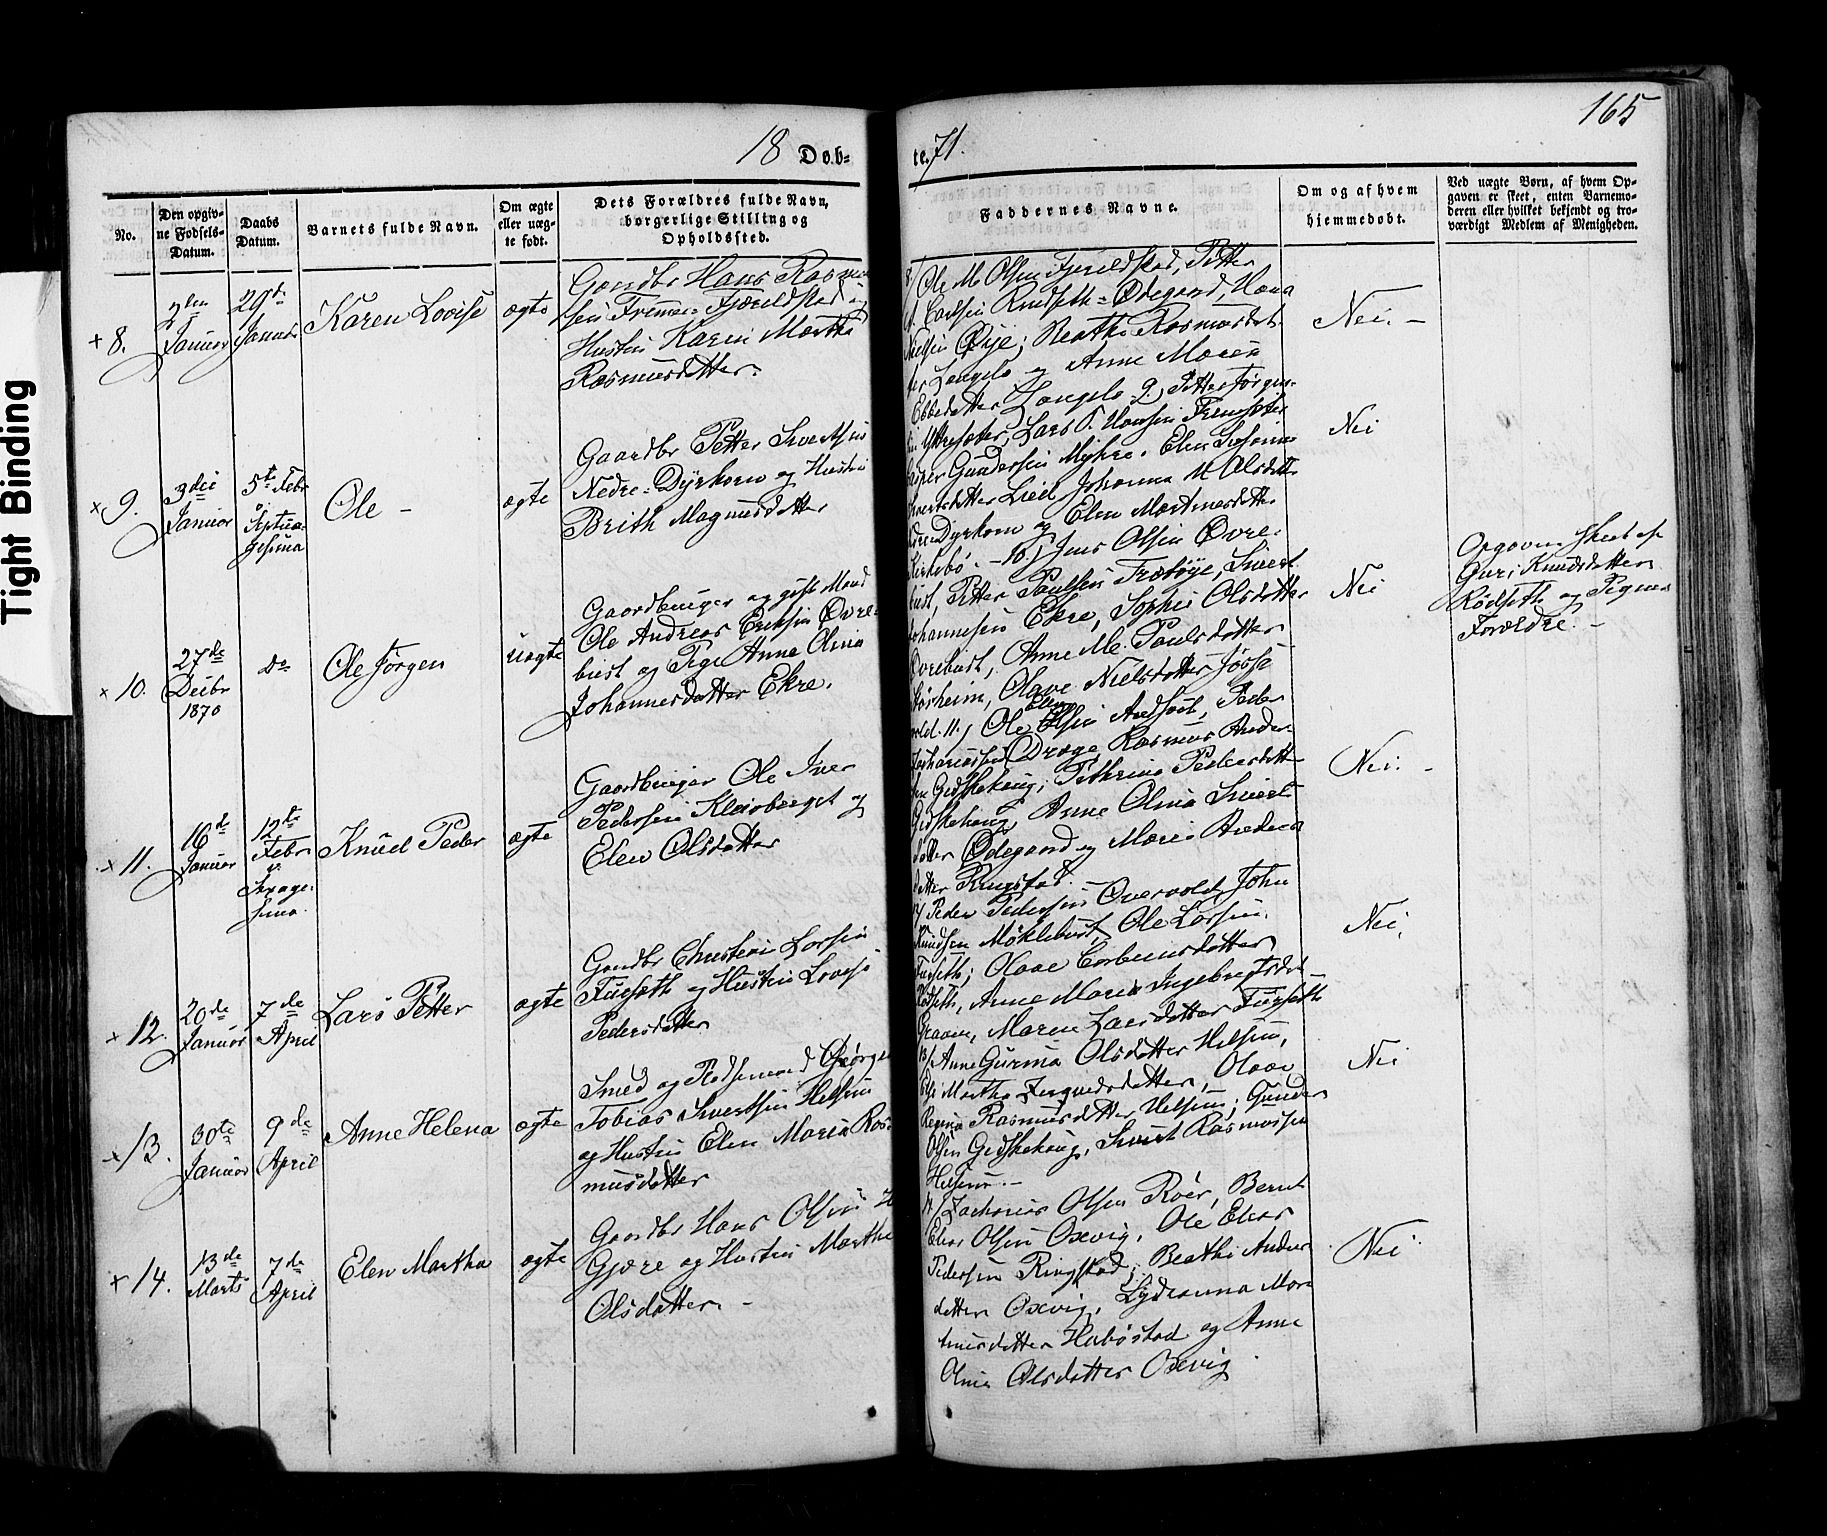 Tight Binding
18 Døb-
te. 71.
165
No.
Den opgiv-
ne Fødsels-
Datum.
Daabs
Datum.
Barnets fulde Navn.
Om ægte
eller uæg-
te født.
Dets Forældres fulde Navn,
borgerlige Stilling og
Opholdssted.
Faddernes Navne.
Om og af hvem
hjemmedøbt.
Ved uægte Børn, af hvem Op-
gaven er skeet, enten Barnemo-
deren eller hvilket bekjendt og tro-
værdigt Medlem af Menigheden.
+ 8.
Januar
29de
Januar
Karen Lovise
ægte
Gaardbr Hans Rasmus
sen Fremre-Fjæreldstad og
Hustru Karen Martha
Rasmusdatter.
Ole M. Olsen Fjereldstad, Petter
Carlsen Knudseth-Ødegaard, Hans
Nielsen Øye; Beathe Rasmusdat-
ter Langelo og Anne Maren
Ebbedatter Langelo
Nei. -
x 9.
3die
Januar
5te Febr
Septua-
gesima
Ole -
ægte
Gaardbr Petter Sivertsen
Nedre-Dyrkorn og Hustru
Brith Magnusdatter
9. Petter Jørgen-
sen Yttresæter, Lars P. Hansen Fremsæter
Gundersen Myhre. Elen
Lied Johanna M Olsdatt
Dyrkorn og Elen Martinusdatter
Nei
x 10.
27de
Decbr
1870
do
Ole Jørgen
uægte
Gaardbruger og gift Mand
Ole Andreas Eriksen Øvre-
bust og Pige Anne Olina
Johannesdatter Ekre.
10. Jens Olsen Øvre-
bust, Petter Paulsen Træhøje, Sivert
Johannesen Ekre, Sophie Olsdatter
Øvrebust, Anne M. Paulsdatter
Olave Nielsdatter
Nei
Opgaven skeet af
Guri Knudsdatter
Rødseth og Pigens
Forældre. -
x 11.
16de
Januar
12te
Febr
Sexage-
sima.
Knud Peder
ægte
Gaardbruger Ole Iver
Pedersen Kleivberget og
Elen Olsdatter
11. Ole Olsen Audestad, Peder
Zachariassen Drage, Rasmus Ander-
sen Gidskehaug; Pethrine Pedersdatt
Gidskehaug, Anne Olina Sivert-
datter Ødegaard og Maren Andrea
datter Ringstad.
Nei. -
x 12.
20de
Januar
7de
April
Lars Petter
ægte
Gaardbr Christen Larsen
Furseth og Hustru Lovise
Pedersdatter
Peder Pedersen Overvold, John
Knudsen Møklebust, Ole Larsen
Furseth; Olave Corbeinsdatter
Rødseth, Anne Maria Ingebregtsdat-
Graven, Maren Larsdatter Furseth
Nei,
x 13.
30te
Januar
9de
April
Anne Helena
ægte
Smed og Pladsemand Gjørgen
Tobias Sivertsen Helsem
og Hustru Elen Maria Ras-
musdatter
13/ Anne Gurina Olsdatter Helsem,
Else Martha datter, Olave
Regina Rasmusdatter Helsem; Gunder
Olsen Gidskehaug, Sivert Rasmussen
Helsem. -
Nei
x 14.
13de
Marts
7de
April
Elen Martha
ægte
Gaardbr Hans Olsen
Gjære og Hustru Martha
Olsdatter. -
14/ Zacharias Olsen Roer, Bernt
Elias Olsen Oxevig, Ole Elias
Pedersen Ringstad; Beathe Anders
datter Oxevig, Lydeanna Mar-
tinusdatter Habostad og Anne
Oline Olsdatter Oxevig.
Nei